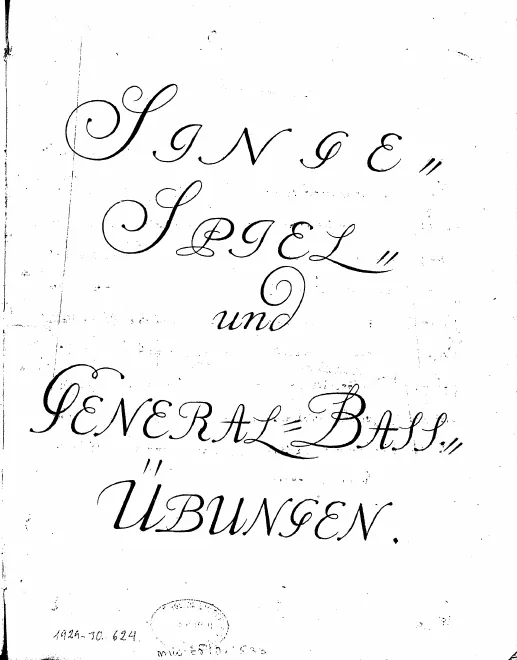 SINGE„
SPIEL„
und
GENERAL=BASS„
ÜBUNGEN.
1929-TO. 624.